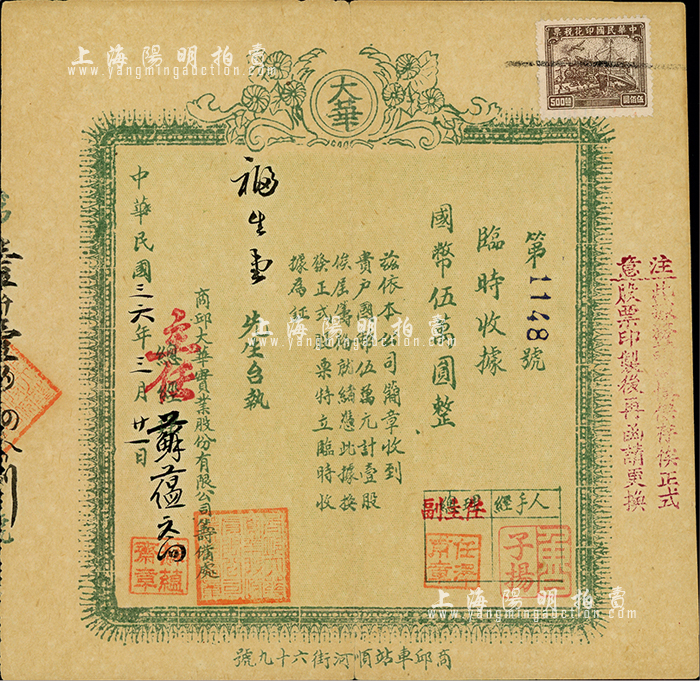 上海陽明拍賣
www.yangmingauction.com
中華民國印花稅票
500
伍佰圓
大華
第1148號
臨時收據
國幣伍萬圓整
茲依本公司簡章收到
貴戶國幣伍萬元計壹股
俟居備就緒憑此據換
發正式股票特立臨時收
據為証
福生
先生台執
商邱大華實業股份有限公司籌備處
主任
總經
蘇蘊
中華民國三六年三月廿一日
經手人
副主任
子揚
任澤
齋章
蘊
齋章
注意
俟正式
股票印製後再函請更換
商邱車站順河街六十九號
上海陽明拍賣
www.yangmingauction.com
上海陽明拍賣
www.yangmingauction.com